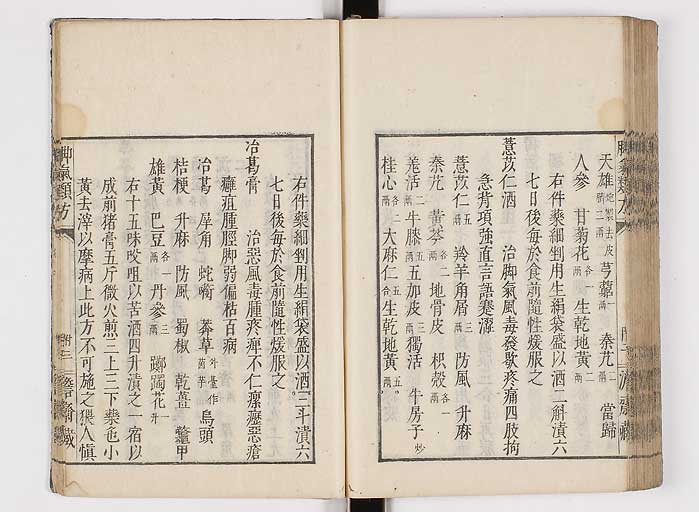 天雄 芎藭 秦艽 當歸
人參 甘菊花 生乾地黃
右件藥細剉用生絹袋盛以酒二斛漬六
七日後每於食前隨性煖服之
薏苡仁酒 治脚氣風毒發歇疼痛四肢拘
急背項強直言語蹇澀
薏苡仁 羚羊角屑 防風 升麻
秦艽 黃芩 地骨皮 枳殼
羌活 牛膝 五加皮 獨活 牛房子炒
桂心 大麻仁 生乾地黃
右件藥細剉用生絹袋盛以酒二斗漬六
七日後每於食前隨性煖服之
冶葛膏 治惡風毒腫疼痺不仁瘰癧惡瘡
癰疽腫脛脚弱偏枯百病
冶葛 犀角 蛇銜 莽草 烏頭
桔梗 升麻 防風 蜀椒 乾薑 鼈甲
雄黃 巴豆 丹參 躑躅花
右十五味㕮咀以苦酒四升漬之一宿以
成煎猪膏五斤微火煎三上三下藥色小
黃去滓以摩病上此方不可施之猥人慎
脚氣類方